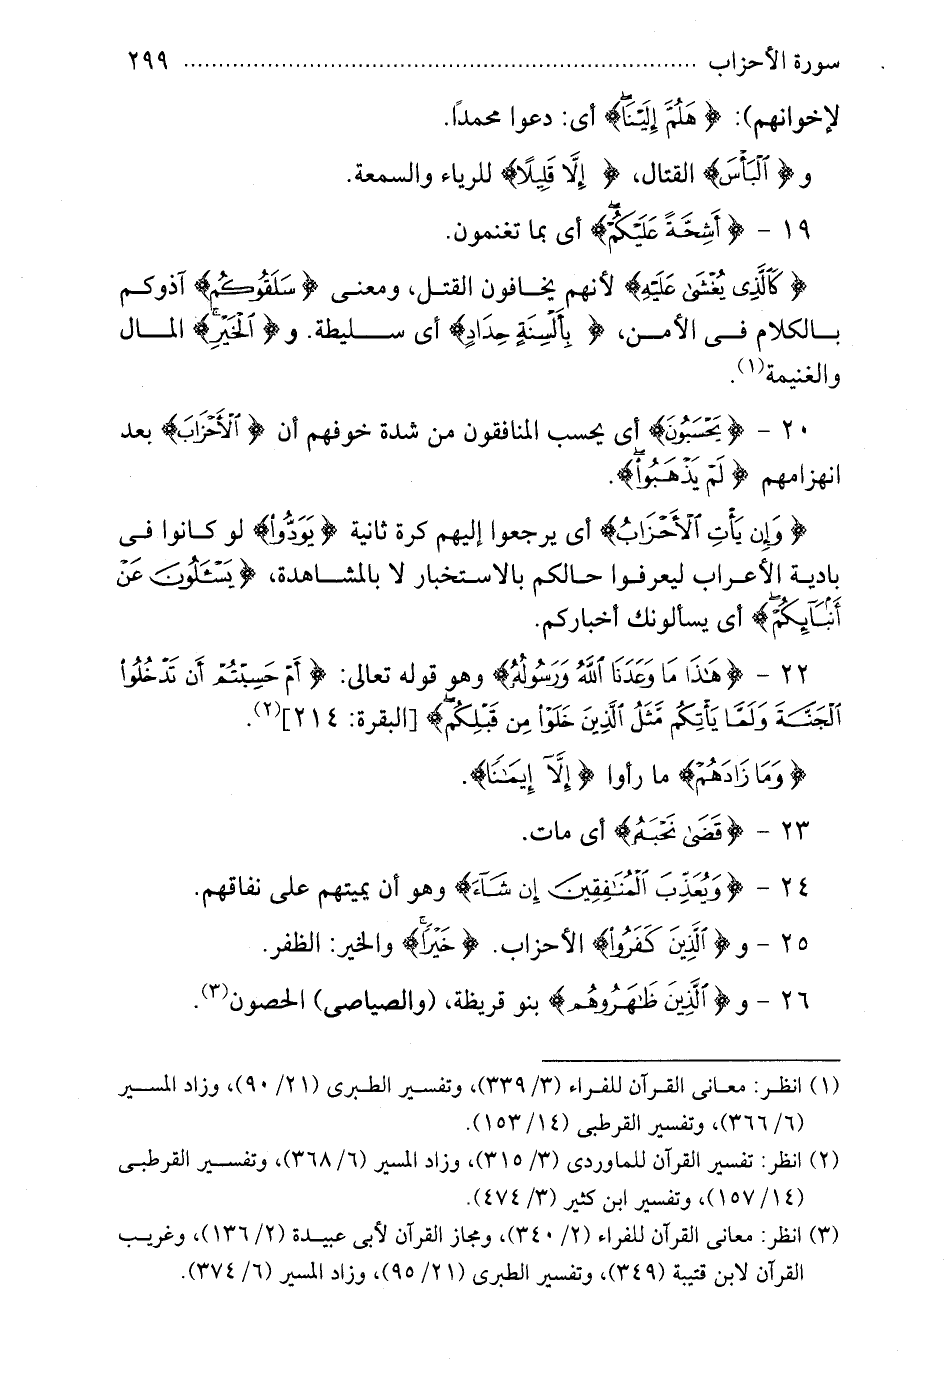 سورة الأحزاب ................................................................ ٢٩٩
لإخوانهم): ﴿ هَلُمَّ إِلَيْنَاۖ ﴾ أى: دعوا محمدًا.
و﴿ ٱلْبَأْسَ ﴾ القتال، ﴿ إِلَّا قَلِيلًا ﴾ للرياء والسمعة.
١٩ - ﴿ أَشِحَّةً عَلَيْكُمْۖ ﴾ أى بما تغنمون.
﴿ كَٱلَّذِى يُغْشَىٰ عَلَيْهِ ﴾ لأنهم يخافون القتل، ومعنى ﴿ سَلَقُوكُم ﴾ آذوكم
بالكلام فى الأمن، ﴿ بِأَلْسِنَةٍ حِدَادٍ ﴾ أى سليطة. و﴿ ٱلْخَيْرِۚ ﴾ المال
والغنيمة(١).
٢٠ - ﴿ يَحْسَبُونَ ﴾ أى يحسب المنافقون من شدة خوفهم أن ﴿ ٱلْأَحْزَابَ ﴾ بعد
انهزامهم ﴿ لَمْ يَذْهَبُوا۟ۖ ﴾.
﴿ وَإِن يَأْتِ ٱلْأَحْزَابُ ﴾ أى يرجعوا إليهم كرة ثانية ﴿ يَوَدُّوا۟ ﴾ لو كانوا فى
بادية الأعراب ليعرفوا حالكم بالاستخبار لا بالمشاهدة، ﴿ يَسْـَٔلُونَ عَنْ
أَنۢبَآئِكُمْۖ ﴾ أى يسألونك أخباركم.
٢٢ - ﴿ هَٰذَا مَا وَعَدَنَا ٱللَّهُ وَرَسُولُهُۥ ﴾ وهو قوله تعالى: ﴿ أَمْ حَسِبْتُمْ أَن تَدْخُلُوا۟
ٱلْجَنَّةَ وَلَمَّا يَأْتِكُم مَّثَلُ ٱلَّذِينَ خَلَوْا۟ مِن قَبْلِكُمۖ ﴾ [البقرة: ٢١٤](٢).
﴿ وَمَا زَادَهُمْ ﴾ ما رأوا ﴿ إِلَّآ إِيمَٰنًا ﴾.
٢٣ - ﴿ قَضَىٰ نَحْبَهُۥ ﴾ أى مات.
٢٤ - ﴿ وَيُعَذِّبَ ٱلْمُنَٰفِقِينَ إِن شَآءَ ﴾ وهو أن يميتهم على نفاقهم.
٢٥ - و﴿ ٱلَّذِينَ كَفَرُوا۟ ﴾ الأحزاب. ﴿ خَيْرًاۚ ﴾ والخير: الظفر.
٢٦ - و﴿ ٱلَّذِينَ ظَٰهَرُوهُم ﴾ بنو قريظة، (والصياصى) الحصون(٣).
(١) انظر: معانى القرآن للفراء (٣/ ٣٣٩)، وتفسير الطبرى (٢١/ ٩٠)، وزاد المسير
(٦/ ٣٦٦)، وتفسير القرطبى (١٤/ ١٥٣).
(٢) انظر: تفسير القرآن للماوردى (٣/ ٣١٥)، وزاد المسير (٦/ ٣٦٨)، وتفسير القرطبى
(١٤/ ١٥٧)، وتفسير ابن كثير (٣/ ٤٧٤).
(٣) انظر: معانى القرآن للفراء (٢/ ٣٤٠)، ومجاز القرآن لأبى عبيدة (٢/ ١٣٦)، وغريب
القرآن لابن قتيبة (٣٤٩)، وتفسير الطبرى (٢١/ ٩٥)، وزاد المسير (٦/ ٣٧٤).